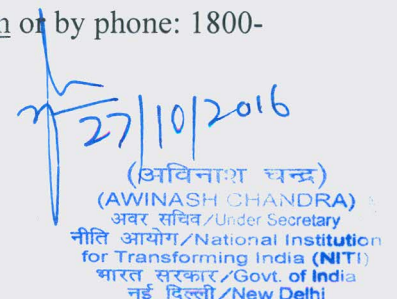 or by phone: 1800-
27/10/2016
(अविनाश चन्द्र)
(AWINASH CHANDRA)
अवर सचिव/Under Secretary
नीति आयोग/National Institution
for Transforming India (NITI)
भारत सरकार/Govt. of India
नई दिल्ली/New Delhi